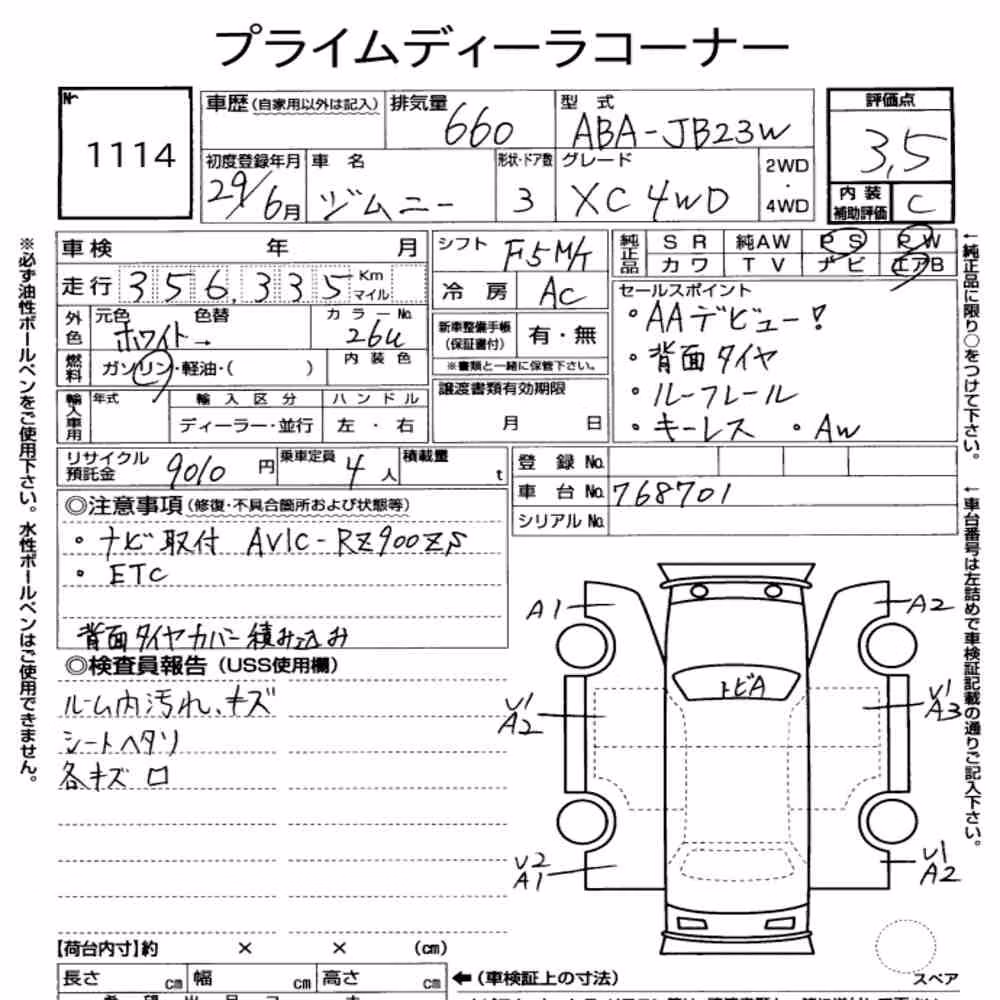 プライムディーラコーナー
№ 1114
車歴(自家用以外は記入) 排気量 660 型式 ABA-JB23W
評価点 3,5
初度登録年月 29/6月 車名 ジムニー 形状・ドア数 3 グレード XC 4WD 2WD・4WD
内装補助評価 C
車検 年 月
走行 356,335 Km マイル
シフト F5M/T
冷房 AC
純正品 SR 純AW PS PW
カワ TV ナビ エアB
セールスポイント
・AAデビュー!
・背面タイヤ
・ルーフレール
・キーレス ・AW
外色 元色 ホワイト→ 色替 カラーNo. 26U
燃料 ガソリン・軽油・( ) 内装色
新車整備手帳(保証書付) 有・無
※書類と一緒に保管下さい。
譲渡書類有効期限
月 日
輸入車用 年式 輸入区分 ハンドル
ディーラー・並行 左・右
リサイクル預託金 9010円 乗車定員 4人 積載量 t
登録No.
車台No. 768701
シリアルNo.
◎注意事項(修復・不具合箇所および状態等)
・ナビ取付 AVIC-RZ900ZS
・ETC
背面タイヤカバー積み込み
◎検査員報告(USS使用欄)
ルーム内汚れ、キズ
シートヘタリ
各キズ ロ
A1
A2
トビA
U1
A2
U1
A3
U2
A1
U1
A2
【荷台内寸】約 × × (cm)
長さ cm 幅 cm 高さ cm ←(車検証上の寸法)
スペア
※必ず油性ボールペンをご使用下さい。水性ボールペンはご使用できません。
←純正品に限り○をつけて下さい。
←車台番号は左詰めで車検証記載の通りご記入下さい。